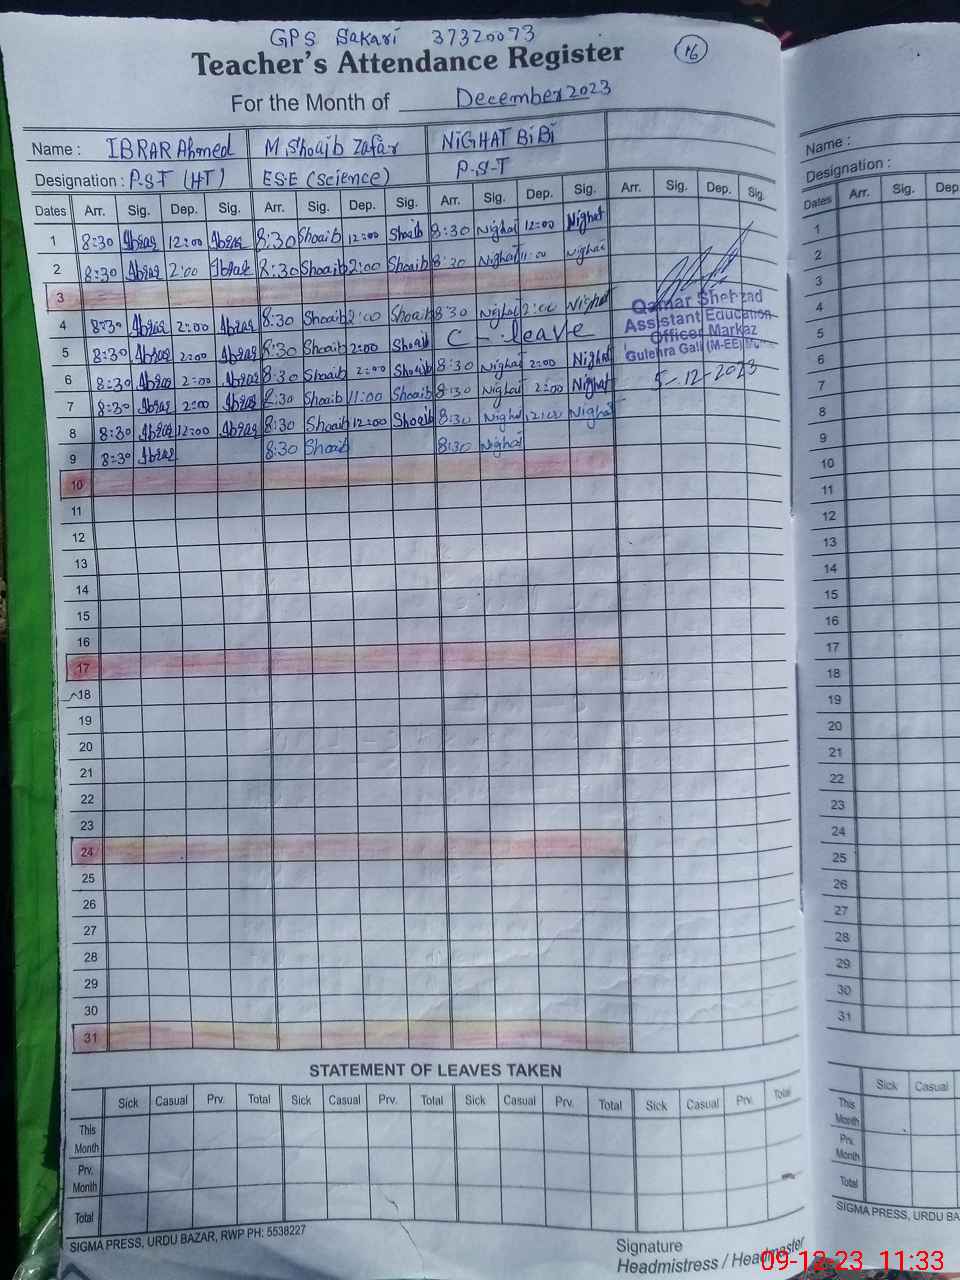 GPS Sakari 37320073
Teacher's Attendance Register
16
For the Month of December 2023
Name : IBRAR Ahmed M.Shoaib Zafar NiGHAT BiBi
Designation : P.S.T (HT) ESE (Science) P.S.T
Dates Arr. Sig. Dep. Sig. Arr. Sig. Dep. Sig. Arr. Sig. Dep. Sig. Arr. Sig. Dep. Sig.
1 8:30 Ibrar 12:00 Ibrar 8:30 Shoaib 12:00 Shoaib 8:30 Nighat 12:00 Nighat
2 8:30 Ibrar 2:00 Ibrar 8:30 Shoaib 2:00 Shoaib 8:30 Nighat Nighat
3
4 8:30 Ibrar 2:00 Ibrar 8:30 Shoaib 2:00 Shoaib 8:30 Nighat 2:00 Nighat
5 8:30 Ibrar 2:00 Ibrar 8:30 Shoaib 2:00 Shoaib C - leave
6 8:30 Ibrar 2:00 Ibrar 8:30 Shoaib 2:00 Shoaib 8:30 Nighat 2:00 Nighat
7 8:30 Ibrar 2:00 Ibrar 8:30 Shoaib 11:00 Shoaib 8:30 Nighat 2:00 Nighat
8 8:30 Ibrar 12:00 Ibrar 8:30 Shoaib 12:00 Shoaib 8:30 Nighat 12:00 Nighat
9 8:30 Ibrar 8:30 Shoaib 8:30 Nighat
10
11
12
13
14
15
16
17
18
19
20
21
22
23
24
25
26
27
28
29
30
31
Qamar Shehzad
Assistant Education
Officer Markaz
Gulehra Gali (M-EE)
5-12-2023
STATEMENT OF LEAVES TAKEN
Sick Casual Prv. Total Sick Casual Prv. Total Sick Casual Prv. Total Sick Casual Prv. Total
This
Month
Prv.
Month
Total
SIGMA PRESS, URDU BAZAR, RWP PH: 5538227
Signature
Headmistress / Headmaster
Name :
Designation :
Dates Arr. Sig. Dep
1
2
3
4
5
6
7
8
9
10
11
12
13
14
15
16
17
18
19
20
21
22
23
24
25
26
27
28
29
30
31
Sick Casual
This
Month
Prv.
Month
Total
SIGMA PRESS, URDU BA
09-12-23 11:33